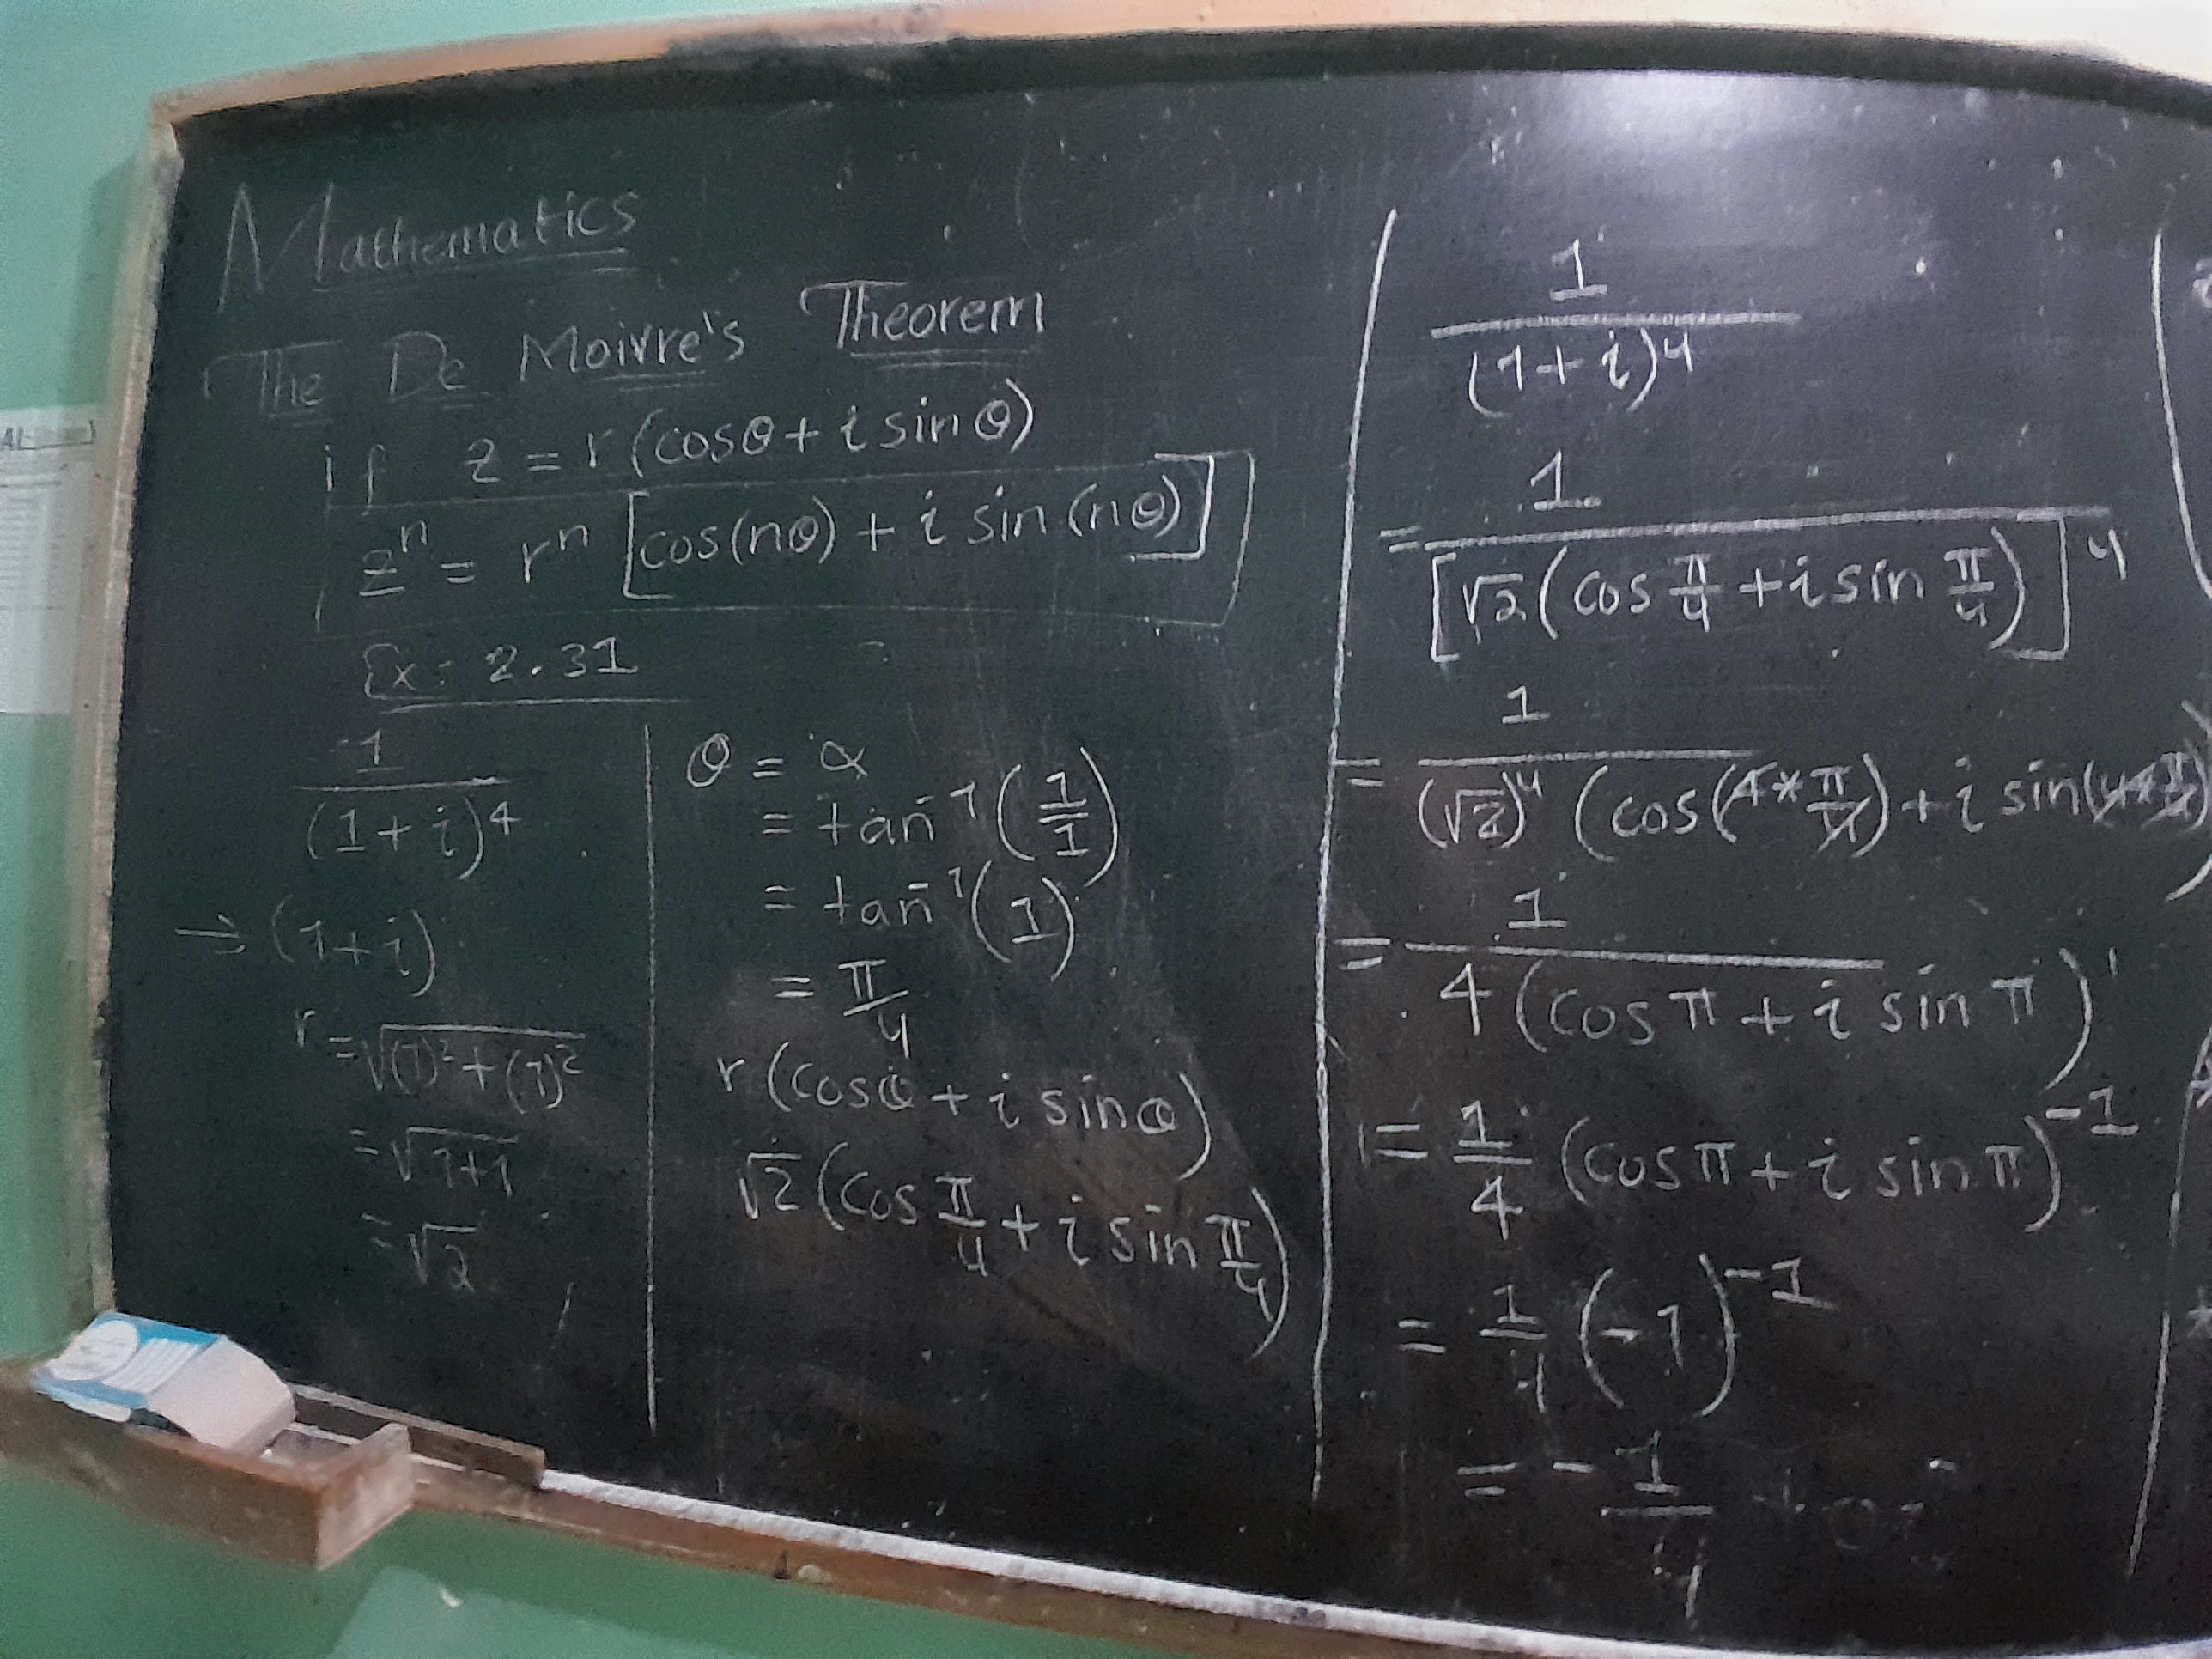 Mathematics
The De Moivre's Theorem
if z = r (cosθ + i sin θ)
zⁿ = rⁿ [cos(nθ) + i sin (nθ)]
Ex: 2.31
1
(1 + i)⁴
→ (1 + i)
r = √(1)² + (1)²
= √1+1
= √2
θ = α
= tan⁻¹ (1/1)
= tan⁻¹ (1)
= π/4
r (cosθ + i sinθ)
√2 (cos π/4 + i sin π/4)
1
(1 + i)⁴
= 1
[√2 (cos π/4 + i sin π/4)]⁴
= 1
(√2)⁴ (cos(4*π/4) + i sin(4*π/4))
= 1
4 (cos π + i sin π)
= 1/4 (cos π + i sin π)⁻¹
= 1/4 (-1)⁻¹
= - 1/4 + 0i